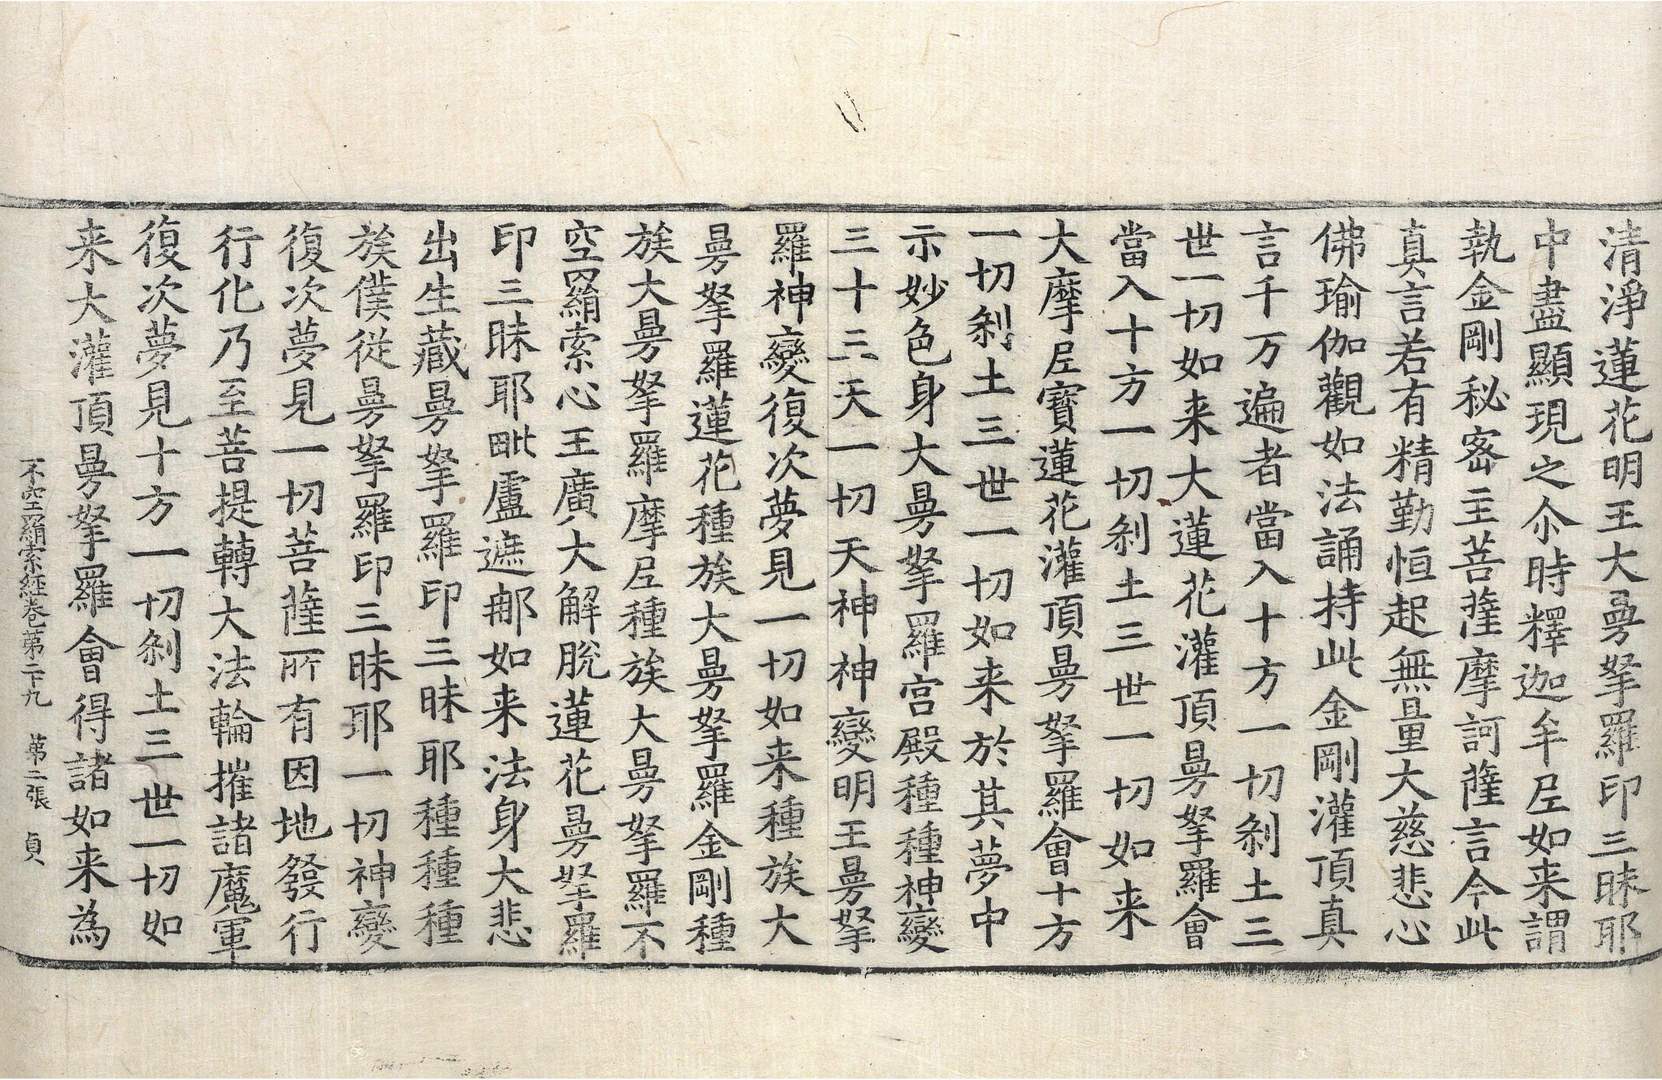 清淨蓮花明王大曼拏羅印三昧耶
中盡顯現之尒時釋迦牟𡰱如来謂
執金剛秘密主菩薩摩訶薩言今此
真言若有精勤恒起無量大慈悲心
佛瑜伽觀如法誦持此金剛灌頂真
言千万遍者當入十方一切刹土三
世一切如来大蓮花灌頂曼拏羅會
當入十方一切刹土三世一切如来
大摩𡰱寶蓮花灌頂曼拏羅會十方
一切刹土三世一切如来於其夢中
示妙色身大曼拏羅宫殿種種神變
三十三天一切天神神變明王曼拏
羅神變復次夢見一切如来種族大
曼拏羅蓮花種族大曼拏羅金剛種
族大曼拏羅摩𡰱種族大曼拏羅不
空羂索心王廣大解脫蓮花曼拏羅
印三昧耶毗盧遮那如来法身大悲
出生藏曼拏羅印三昧耶種種種
族僕從曼拏羅印三昧耶一切神變
復次夢見一切菩薩所有因地發行
行化乃至菩提轉大法輪摧諸魔軍
復次夢見十方一切刹土三世一切如
来大灌頂曼拏羅會得諸如来為
不空羂索経卷第二十九 第二張 貞